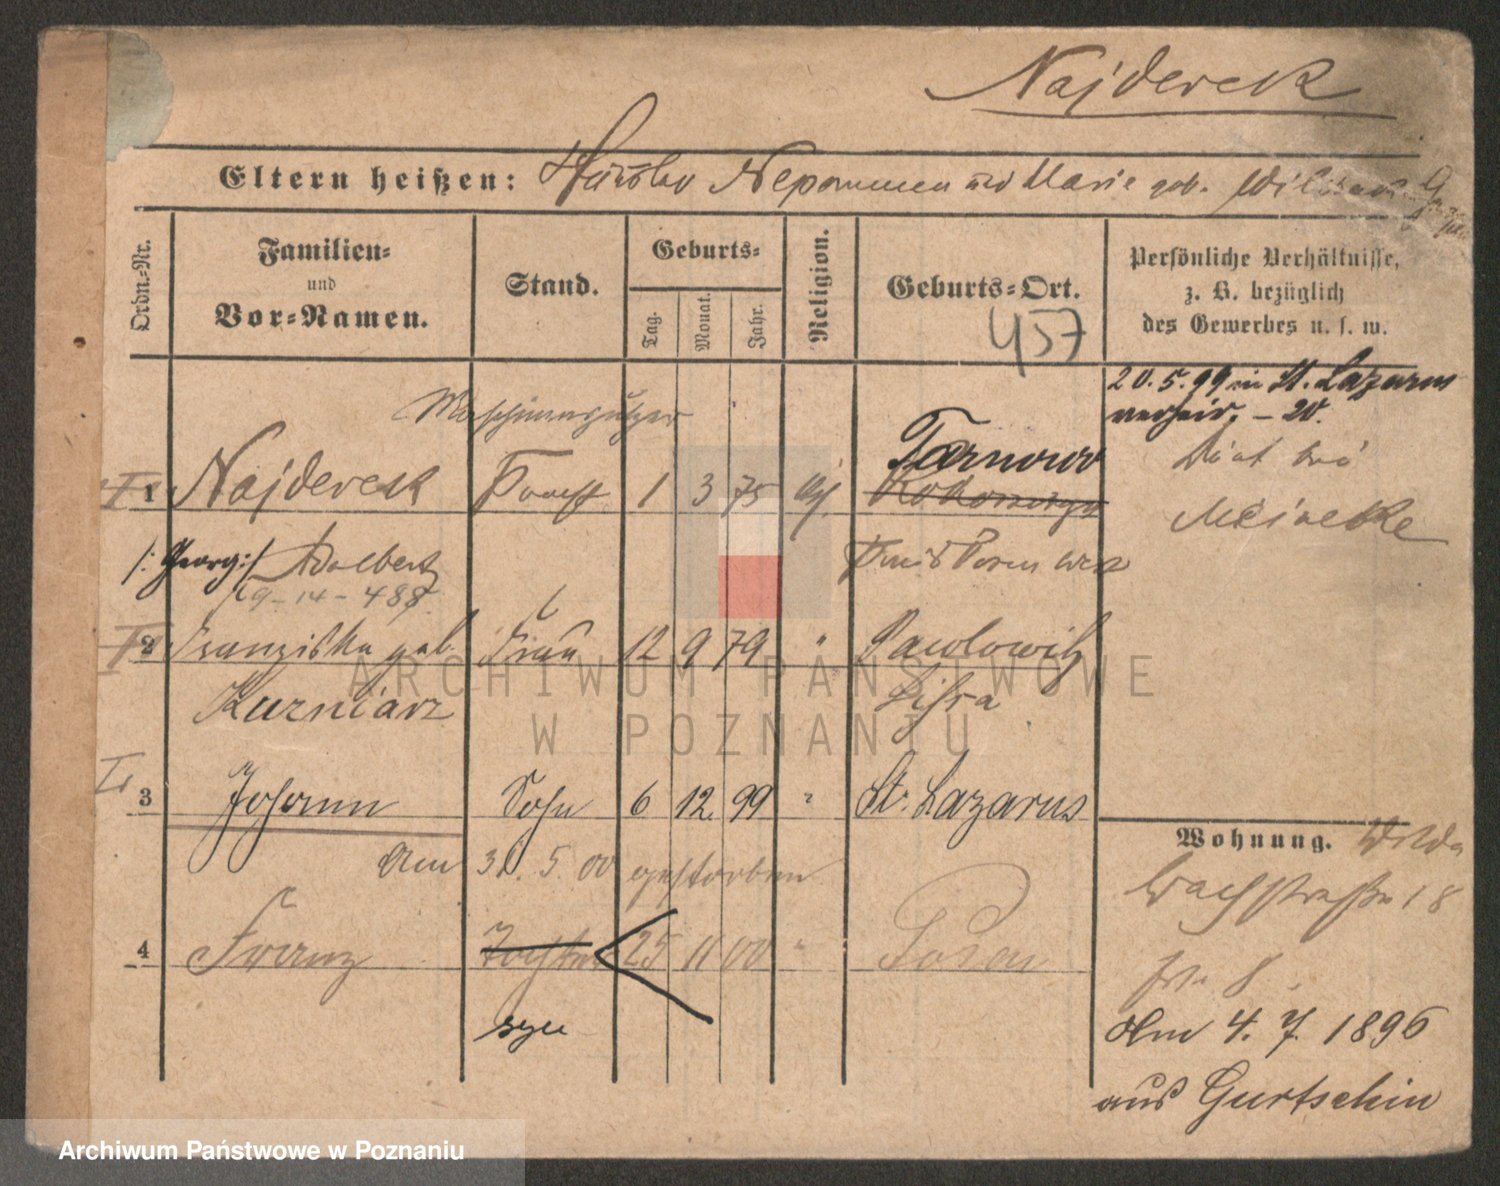 Najdereck
Eltern heißen: Nepomucen und Marie geb.
Ordn.-Nr.
Familien-
und
Vor-Namen.
Stand.
Geburts-
Tag.
Monat.
Jahr.
Religion.
Geburts-Ort.
457
Persönliche Verhältnisse,
z. B. bezüglich
des Gewerbes u. s. w.
20.5.99 in St. Lazarus
verheir. - 20.
Maschinenputzer
1 Najdereck 1 3 75 Tarnowo
Dient bei
Meinecke
/: Georg :/ Adalbert
9-14-488
Kreis Posen West
2 Franziska geb. Frau 12 9 79 " Pawlowitz
Kurniarz Lissa
3 Johann Sohn 6 12. 99 " St. Lazarus
Am 31. 5. 00 gestorben
4 Franz Tochter 25 11 00 " Posen
syn
Wohnung. Wilda
Bachstraße 18
Am 4. 7. 1896
aus Gurtschin
ARCHIWUM PAŃSTWOWE
W POZNANIU
Archiwum Państwowe w Poznaniu